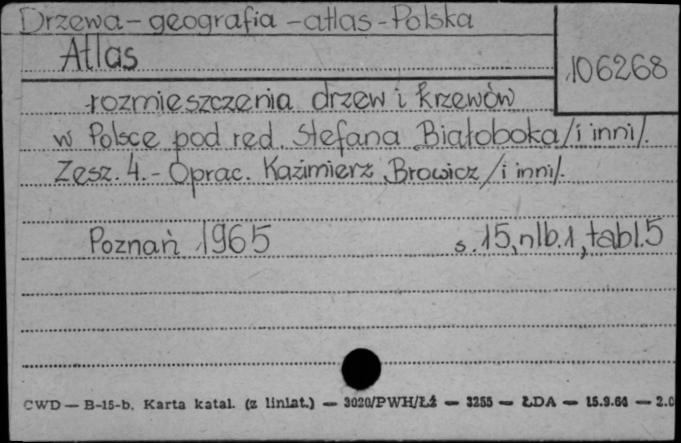 Drzewa - geografia - atlas - Polska
Atlas
106268
rozmieszczenia drzew i krzewów
w Polsce pod red. Stefana Białoboka /i inni/.
Zesz. 4. - Oprac. Kazimierz Browicz /i inni/.
Poznań 1965 s. 15, nlb. 1, tabl. 5
CWD — B-15-b. Karta katal. (z liniat.) — 3020/PWH/Łź — 3255 — ŁDA — 15.9.64 — 2.0